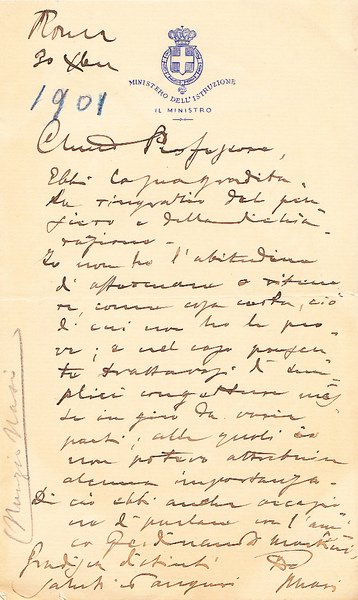 Roma
30 Xbre
1901
MINISTERO DELL'ISTRUZIONE
IL MINISTRO
Chiaro Professore,
Ebbi la sua gradita.
La ringrazio del pen
siero e della dichia
razione.
Io non ho l'abitudine
di affermare e ritene
re, come cosa certa, ciò
di cui non ho le pro
ve; e nel caso presen
te trattavasi di sem
plici congetture mes
se in giro da varie
parti, alle quali io
non potevo attribuire
alcuna importanza.
Di ciò ebbi anche occasio
ne di parlare con l'ami
co Ferdinando Martini.
Gradisca distinti
saluti ed auguri
Nasi
Nunzio Nasi